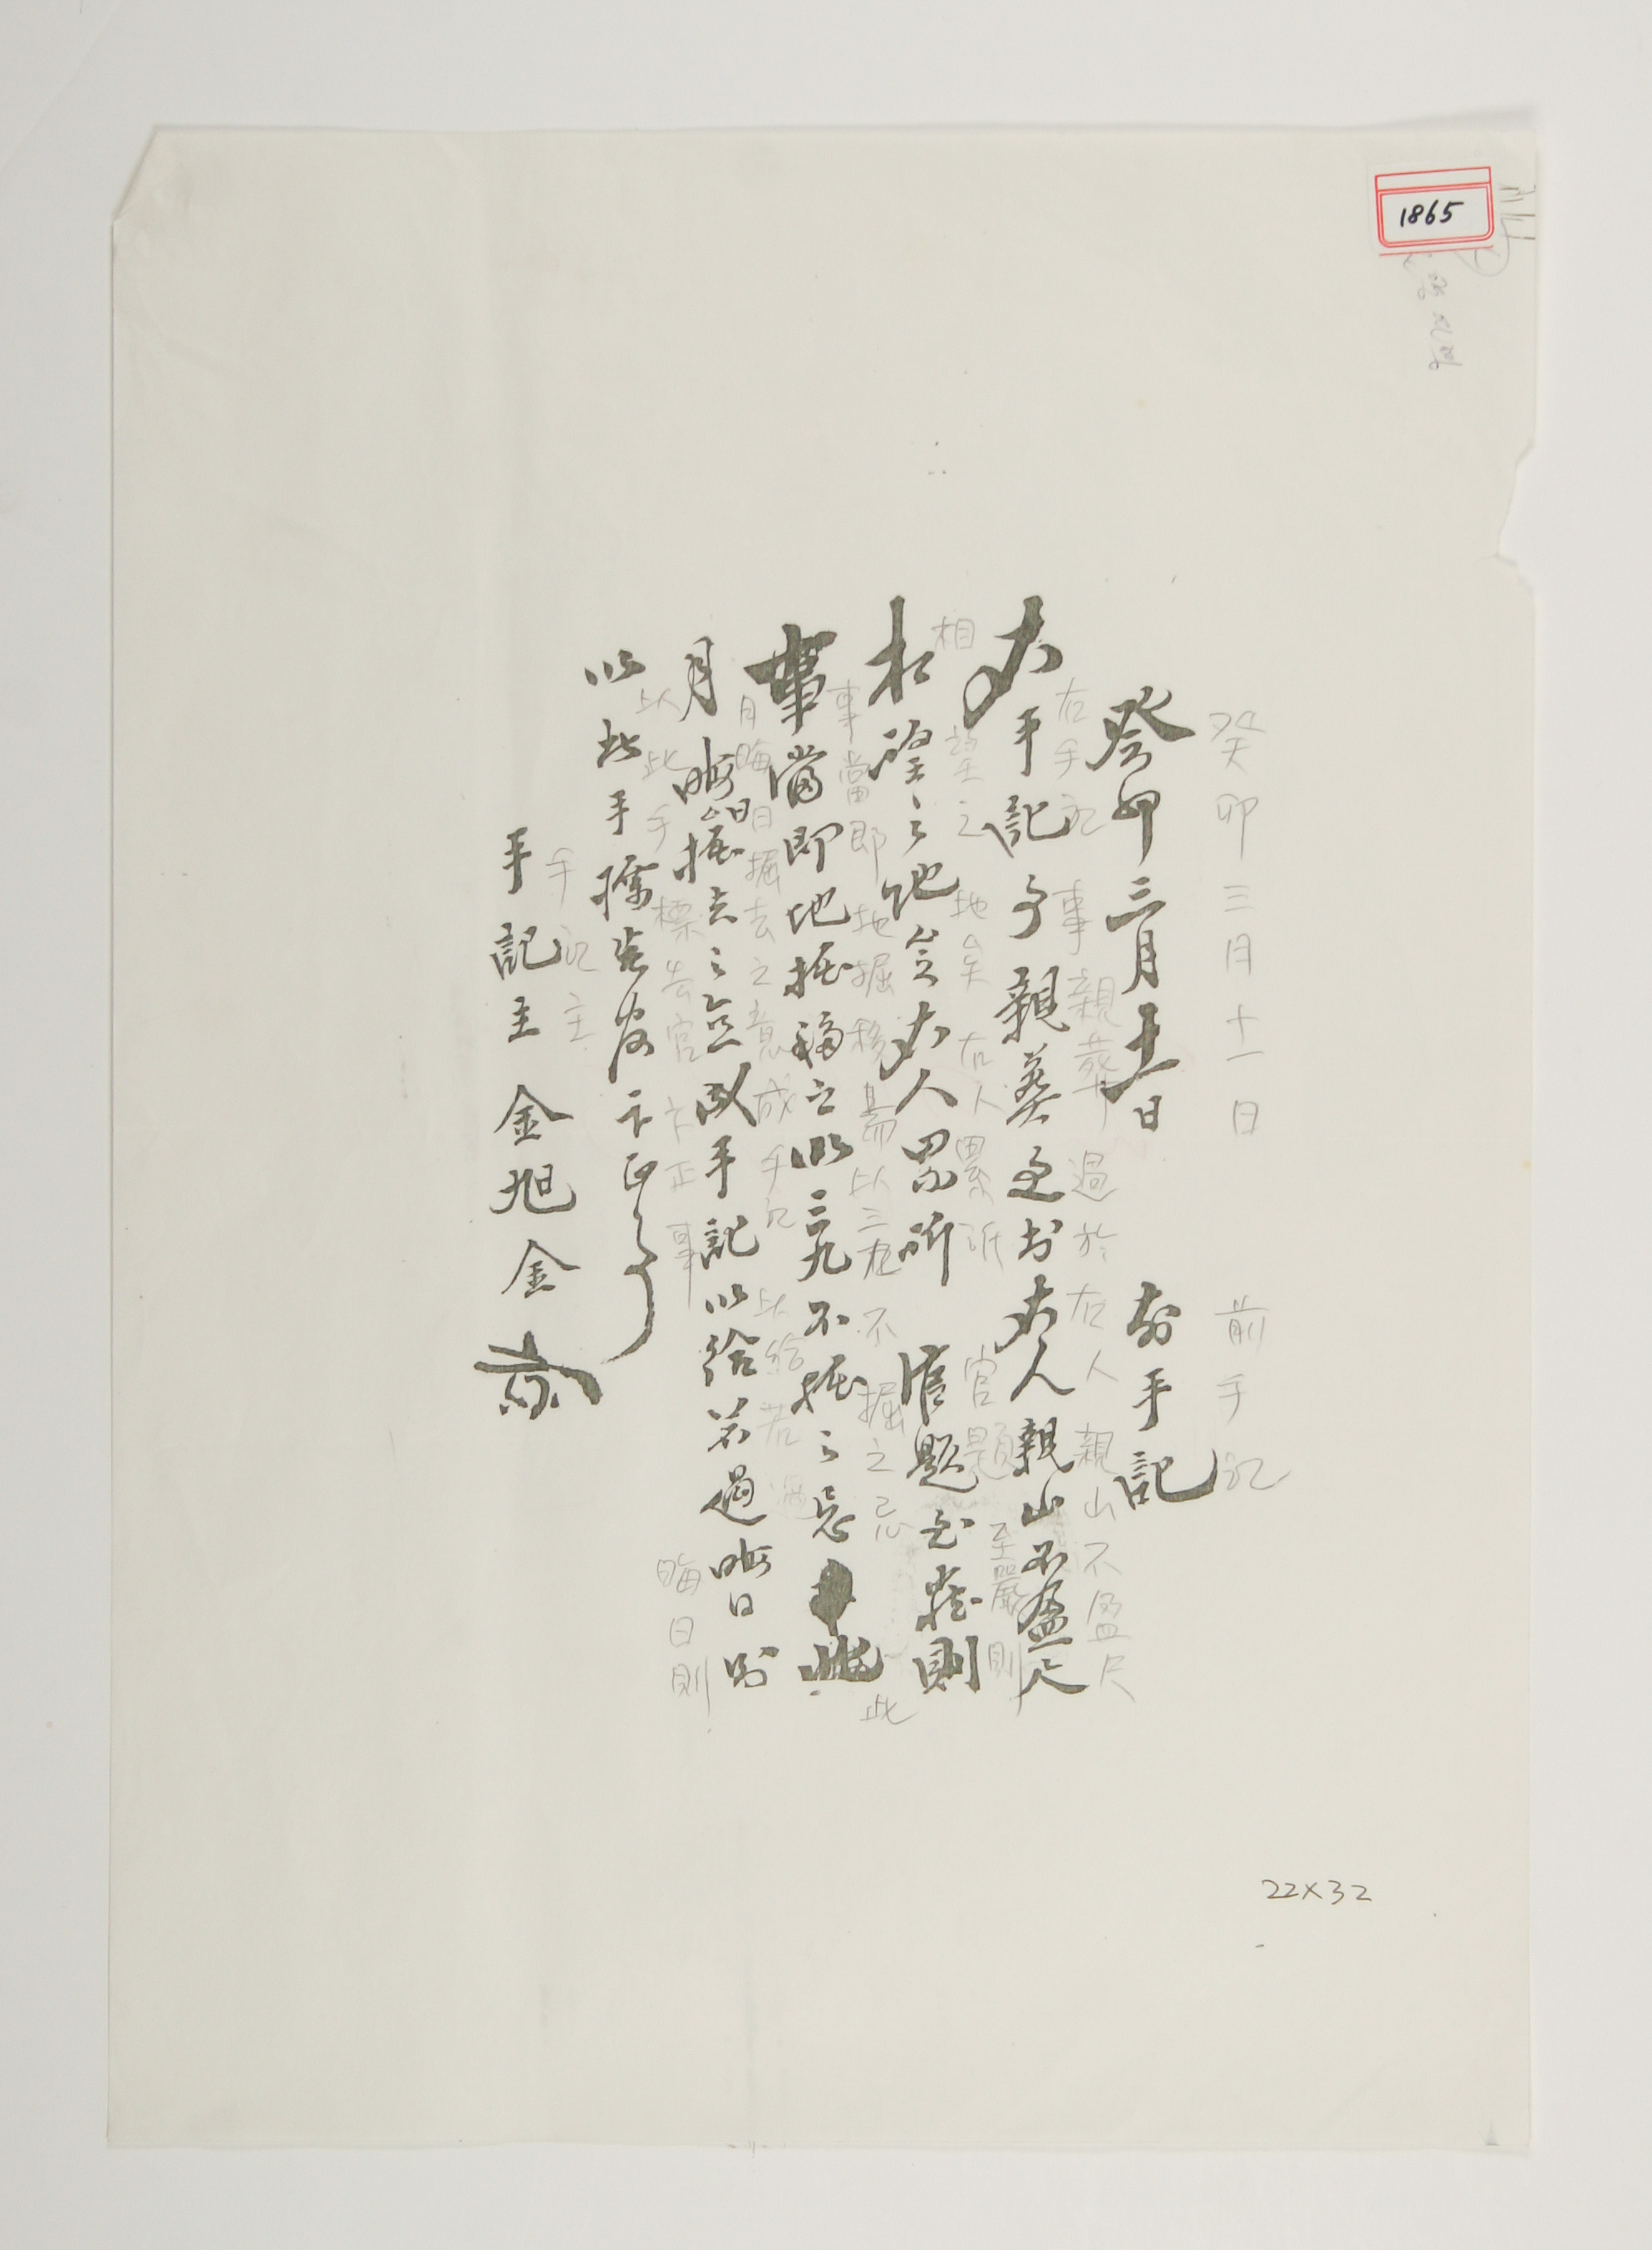 1865
癸卯三月十一日 前手記
癸卯三月十一日 前手記
右手記事親葬過於右人親山不盈尺
右手記事親葬過於右人親山不盈尺
相望之地矣右人累訴 官題至嚴則
相望之地矣右人累訴 官題至嚴則
事當即地掘移 以三 不掘之忌 此
事當即地掘移 以三 不掘之忌 此
月晦日掘去之意成手記以給若過晦日則
月晦日掘去之意成手記以給若過晦日則
以此手標告官卞正事
以此手標告官卞正事
手記主 金旭金
手記主
22×32